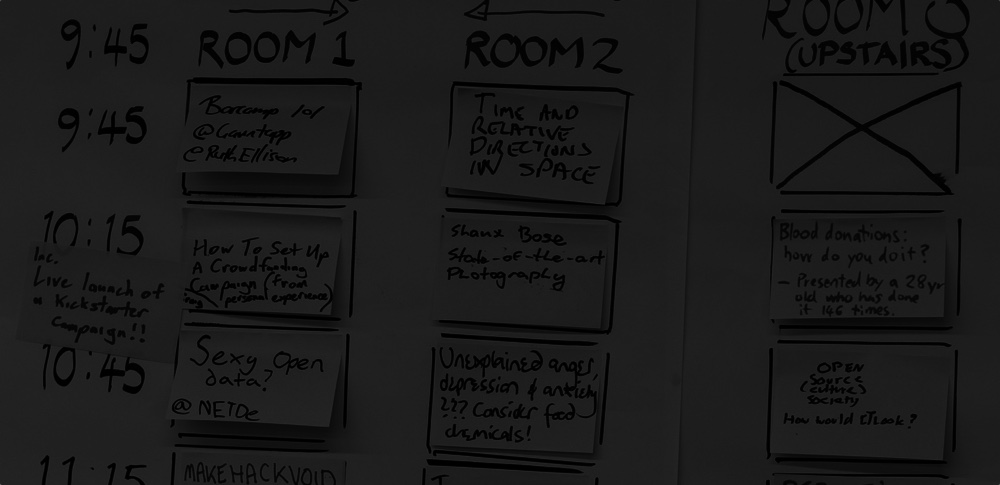 9:45
ROOM 1
ROOM 2
ROOM 3
(UPSTAIRS)
9:45
Barcamp 101
@RuthEllison
TIME AND
RELATIVE
DIRECTIONS
IN SPACE
10:15
Inc.
Live launch of
a Kickstarter
Campaign!!
How To Set Up
A Crowdfunding
Campaign (from
personal experience)
Shanx Bose
State-of-the-art
Photography
Blood donations:
how do you do it?
- Presented by a 28yr
old who has done
it 146 times.
10:45
Sexy Open
data?
@NETDe
Unexplained anger,
depression & anxiety
??? Consider food
chemicals!
OPEN
Source
(culture)
Society
How would it look?
11:15
MAKEHACKVOID